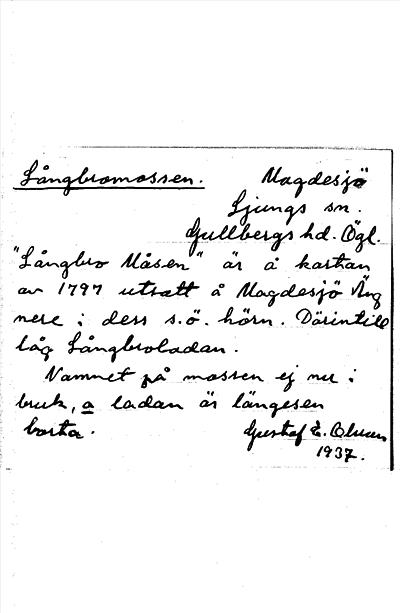 Långbromossen. Magdesjö
Ljungs sn.
Gullbergs hd. Ögl.
"Långbro Måsen" är å kartan
av 1797 utsatt å Magdesjö Äng
nere i dess s.ö. hörn. Därintill
låg Långbroladan.
Namnet på mossen ej mer i
bruk, o ladan är längesen
borta. Gustaf E. Olsson
1937.